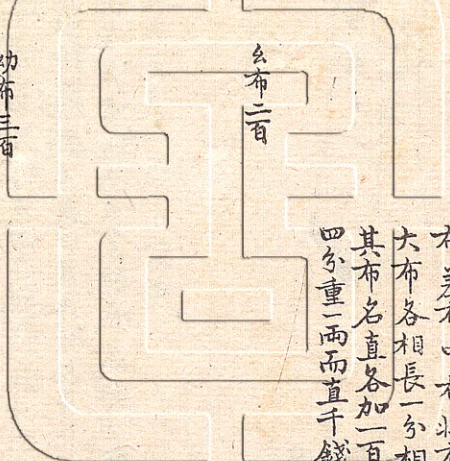 布差布中布壯布
大布各相長一分相
其布名直各加一百
四分重一兩而直千錢
幺布二百
幼布三百